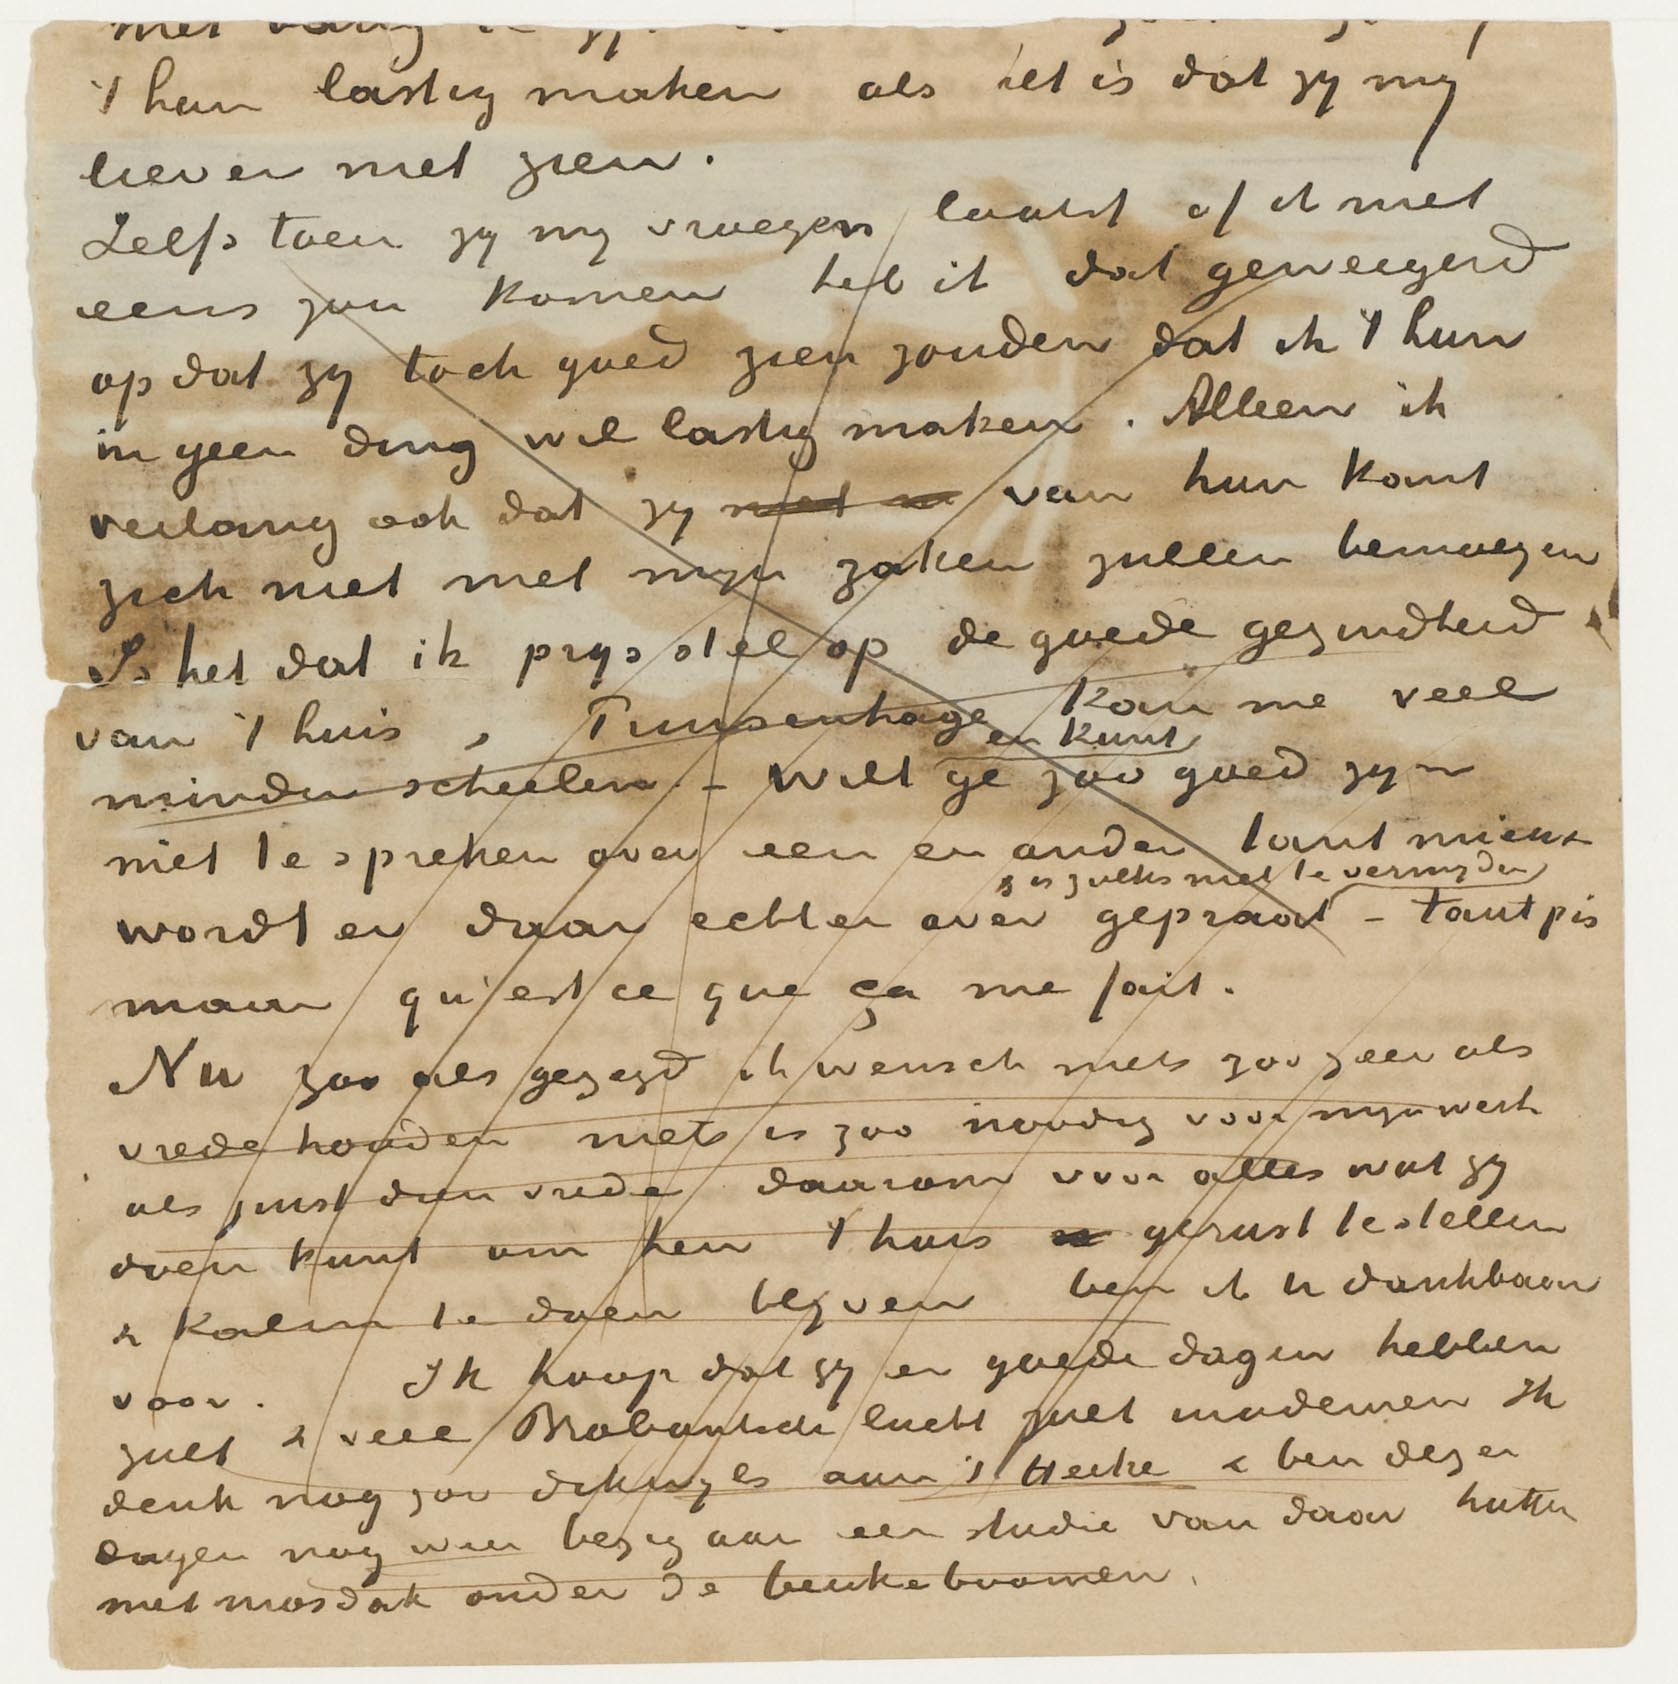 't hun lastig maken als het is dat zy my
liever niet zien.
Zelfs toen zy my vroegen laatst of ik niet
eens zou komen heb ik dat geweigerd
op dat zy toch goed zien zouden dat ik 't hun
in geen ding wil lastig maken. Alleen ik
verlang ook dat zy van hun kant
zich niet met myn zaken zullen bemoeyen
Is het dat ik prys stel op de goede gezindheid
van 't huis, Prinsenhage kan me veel
minder schelen – Wilt ge en kunt zoo goed zyn
niet te spreken over een en ander tant mieux
wordt er daar echter over gepraat & is zulks niet te vermyden – tant pis
maar qu'est ce que ça me fait.
Nu zoo als gezegd ik wensch niets zoo zeer als
vrede houden niets is zoo noodig voor myn werk
als juist dien vrede daarom voor alles wat gy
doen kunt om hen 't huis gerust te stellen
& kalm te doen blyven ben ik U dankbaar
voor. Ik hoop dat gy er goede dagen hebben
zult & veel Brabantsche lucht zult inademen Ik
denk nog zoo dikwyls aan 't Heike & ben dezer
dagen nog weer bezig aan een studie van daar hutten
met mosdak onder de beukeboomen.